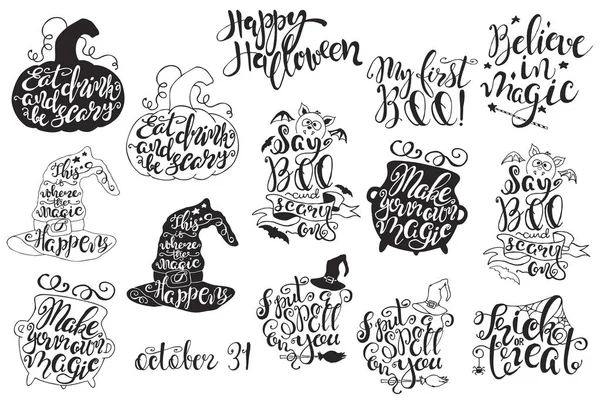 Eat drink
and
be scary
Eat drink
and
be scary
Happy
Halloween
My first
BOO!
Believe
in
magic
This
is
where
the
magic
Happens
This
is
where
the
magic
Happens
Say
BOO
and
scary
on
Make
your own
magic
Say
BOO
and
scary
on
Make
your own
magic
october 31
I put
a
Spell
on you
I put
a
Spell
on you
Trick
or
treat